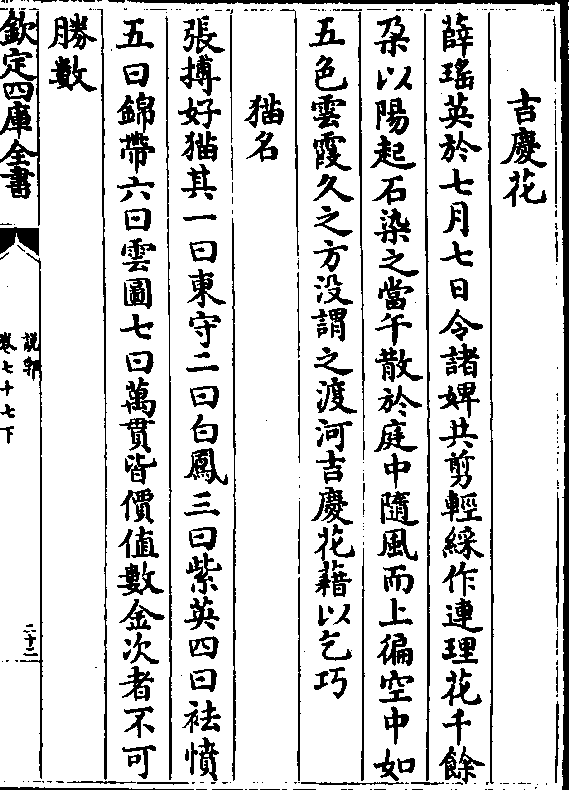 吉慶花
薛瑤英於七月七日令諸婢共剪輕綵作連理花千餘
朶以陽起石染之當午散於庭中隨風而上徧空中如
五色雲霞久之方没謂之渡河吉慶花藉以乞巧
猫名
張搏好猫其一曰東守二曰白鳳三曰紫英四曰袪憤
五曰錦帶六曰雲圖七曰萬貫皆價值數金次者不可
勝數
欽定四庫全書
說郛
卷七十七下
二十三